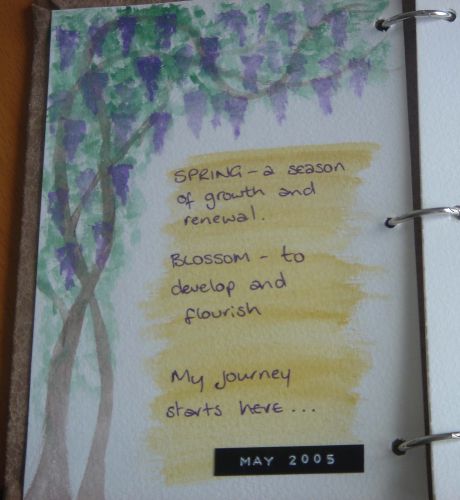 SPRING - a season
of growth and
renewal.
BLOSSOM - to
develop and
flourish
My journey
starts here...
MAY 2005